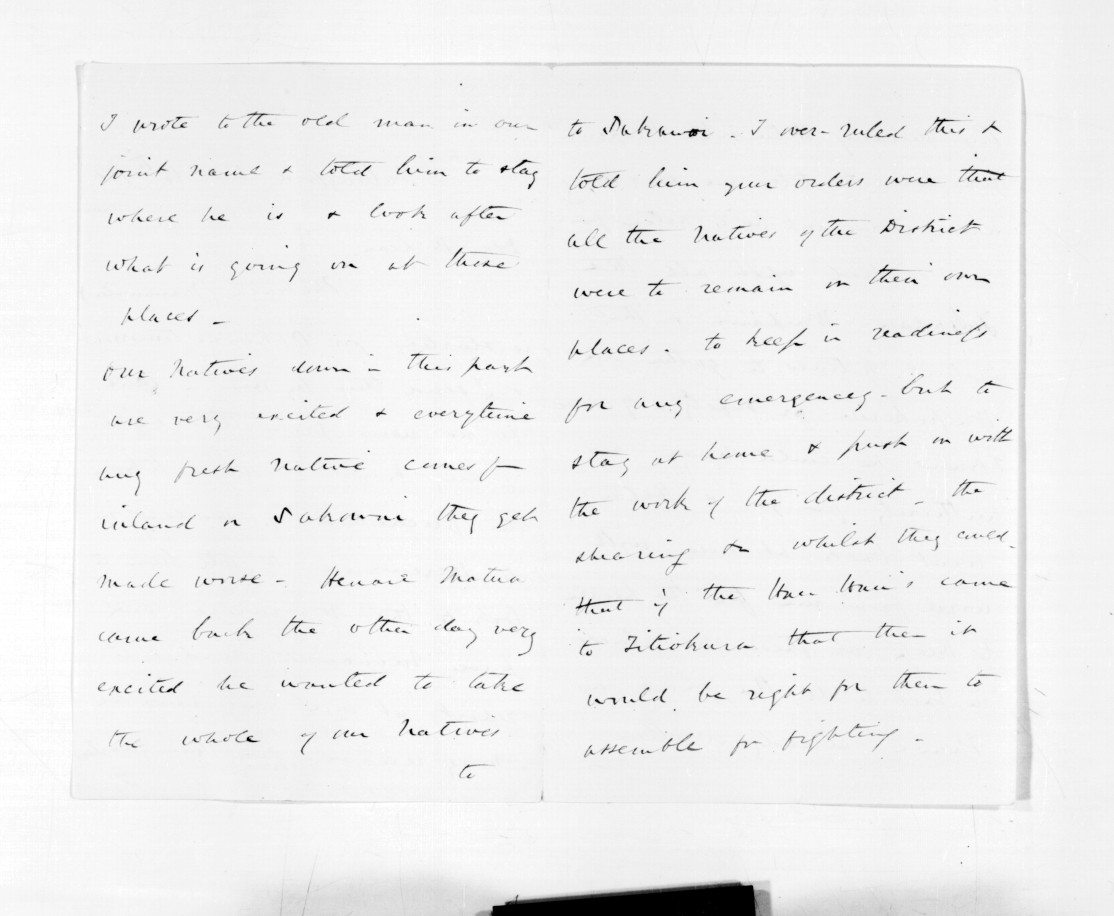 I wrote to the old man in our
joint name & told him to stay
where he is & look after
what is going on at those
places -
Our Natives down in this part
are very excited & everytime
any fresh native comes fm
inland or they get
made worse - Henare Matua
came back the other day very
excited he wanted to take
the whole of our Natives
to
to . I over-ruled this &
told him your orders were that
all the Natives of the District
were to remain on their own
places. to keep in readiness
for any emergency. but to
stay at home & push on with
the work of the district. the
shearing &c whilst they could.
that if the Hau Hau's came
to Titiokura that then it
would be right for them to
assemble for fighting.